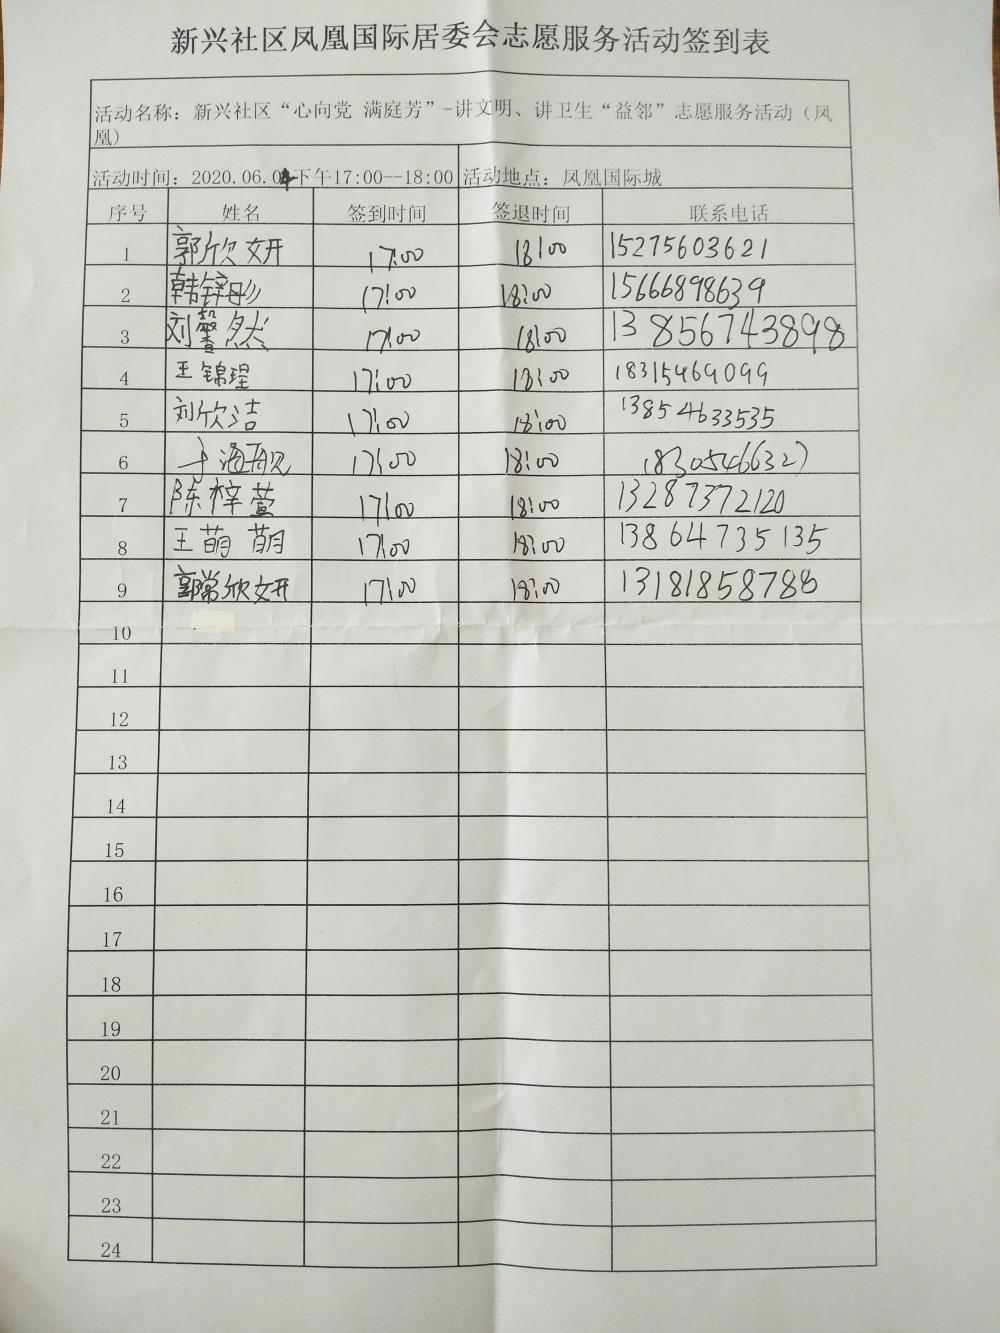 新兴社区凤凰国际居委会志愿服务活动签到表
活动名称：新兴社区“心向党 满庭芳”-讲文明、讲卫生“益邻”志愿服务活动（凤
凰）
活动时间：2020.06.04下午17:00--18:00 活动地点：凤凰国际城
序号 姓名 签到时间 签退时间 联系电话
1 郭欣妍 17:00 18:00 15275603621
2 韩锌彤 17:00 18:00 15666898639
3 刘馨然 17:00 18:00 13856743898
4 王锦瑆 17:00 18:00 18315469099
5 刘欣洁 17:00 18:00 13854633535
6 于海 17:00 18:00 18305466327
7 陈梓萱 17:00 18:00 13287372120
8 王萌萌 17:00 18:00 13864735135
9 郭常欣妍 17:00 18:00 13181858788
10
11
12
13
14
15
16
17
18
19
20
21
22
23
24